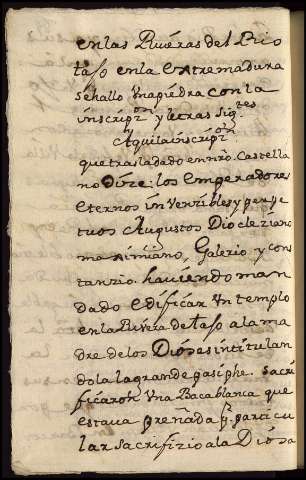 en las Riveras del Rio
tajo en la extremadura
se hallo una piedra con la
inscripon y letras sigtes
Aqui la inscripon
que trasladado en nro. Castella
no dize: los emperadores
eternos invenzibles y perpe
tuos Augustos Diocleziano
maximiano, Galerio y cons
tanzio haviendo man
dado edificar un templo
en la Rivera de tajo a la ma
dre de los Dioses intitulan
dola la grande pasiphe sacri
ficaron Una Baca blanca que
estava preñada pr particu
lar sacrifizio a la Diosa